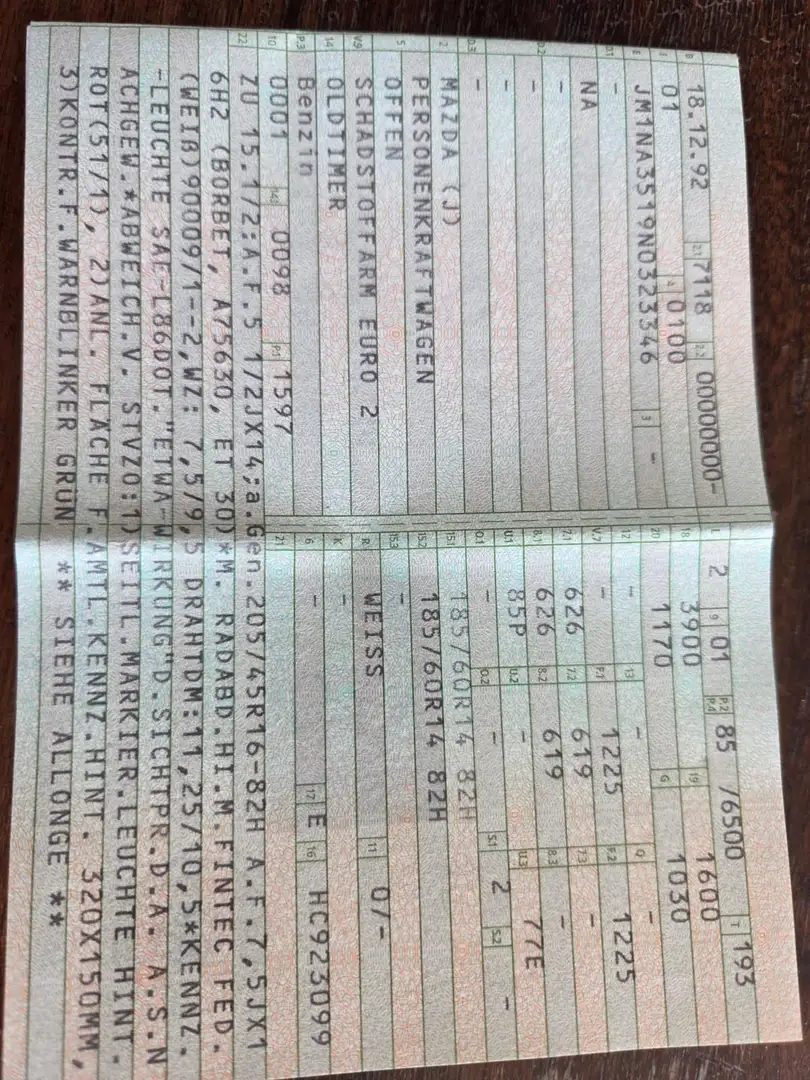 B 18.12.92 2.1 7118 2.2 00000000- L 2 9 01 P.2 P.4 85 /6500 T 193
J 01 4 0100 18 3900 19 1600
E JM1NA3519N0323346 3 - 20 1170 G 1030
D.1 - 12 - 13 - Q -
NA V.7 - F.1 1225 F.2 1225
D.2 - 7.1 626 7.2 619 7.3 -
- 8.1 626 8.2 619 8.3 -
- U.1 85P U.2 - U.3 77E
D.3 - O.1 - O.2 - S.1 2 S.2 -
2 MAZDA (J) 15.1 185/60R14 82H
PERSONENKRAFTWAGEN 15.2 185/60R14 82H
5 OFFEN 15.3 -
V.9 SCHADSTOFFARM EURO 2 R WEISS 11 0/-
14 OLDTIMER K -
P.3 Benzin 6 - 17 E 16 HC923099
10 0001 14.1 0098 P.1 1597 21
22 ZU 15.1/2:A.F.5 1/2JX14;a.Gen.205/45R16-82H A.F.7,5JX1
6H2 (BORBET, A75630, ET 30)*M. RADABD.HI.M.FINTEC FED.
(WEIß)90009/1--2,WZ: 7,5/9,5 DRAHTDM:11,25/10,5*KENNZ.
-LEUCHTE SAE-L86DOT."ETWA-WIRKUNG"D.SICHTPR.D.A. A.S.N
ACHGEW.*ABWEICH.V. STVZO:1)SEITL.MARKIER.LEUCHTE HINT.
ROT(51/1), 2)ANL. FLÄCHE F.AMTL.KENNZ.HINT. 320X150MM,
3)KONTR.F.WARNBLINKER GRÜN ** SIEHE ALLONGE **